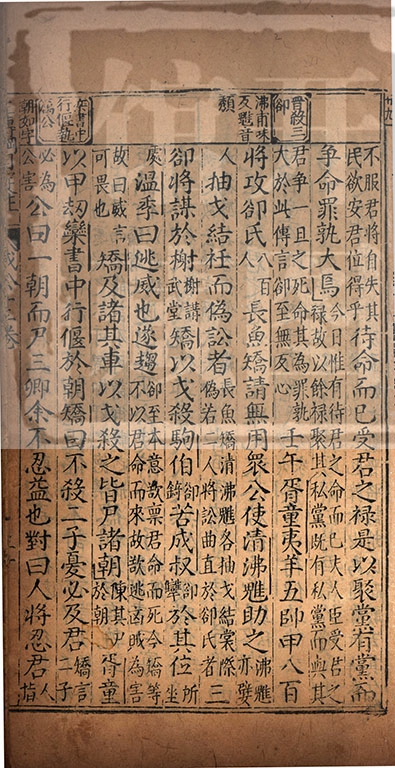 不服君將自失其
民欲安君位得乎
待命而已受君之禄是以聚黨有黨而
争命罪孰大焉
今日惟有待君之命而已夫人臣受君之
禄故以餘禄聚其私黨既有私黨而與其
君争一旦之死命其為罪孰
大於此傳言卻至無反心
壬午胥童夷羊五帥甲八百
晋殺三
卻
將攻卻氏
八百
長魚矯請無用衆公使清沸魋助之
沸魋
亦嬖
沸甫味
反魋首
頽
人
抽戈結衽而偽訟者
長魚矯清沸魋各抽戈結裳際
偽若二人將訟曲直於卻氏者
三
卻將謀於榭
榭講
武堂
矯以戈殺駒伯
卻
錡
苦成叔
卻
犨
於其位
所
坐
處
温季曰逃威也遂趨
卻至本意欲禀君命而死今矯等
不以君命而來故欲逃凶賊為害
故曰威言
可畏也
矯及諸其車以戈殺之皆尸諸朝
陳其尸
於朝
胥童
以甲刼欒書中行偃於朝矯曰不殺二子憂必及君
矯言
二子
欒書中
行偃執
厲公
必為
公害
公曰一朝而尸三卿余不忍益也對曰人將忍君
人
指
朝如字